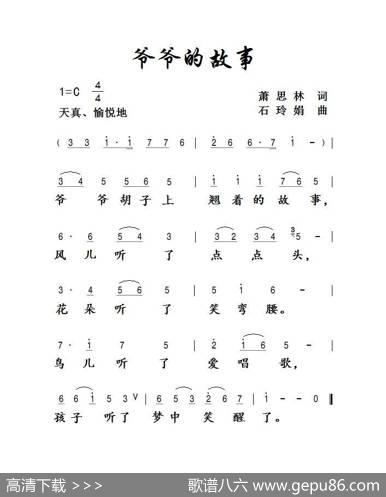 爷爷的故事
1=C 4/4
萧思林 词
天真、愉悦地
石玲娟 曲
( 3 3 1· 1 7 7 6 | 2 6 6· 7 1 - ) |
3 4 5 5 6 5 | 1 1 1 7 6 5 |
爷 爷胡子上 翘着的故事，
6· 6 5 4 3 | 3 2 3 4 5 - |
风儿听了 点点头，
3· 4 5 6 5 | 5 1 6 5 - |
花朵听了 笑弯腰。
7· 1 5 2 | 2 1 6 5 - |
鸟儿听了 爱唱歌，
6 6 1 5 3 V | 6 5 3 2 6 7 | 1 - - 0 ‖
孩子听了梦中笑醒了。
高清下载 >>>
歌谱八六 www.gepu86.com